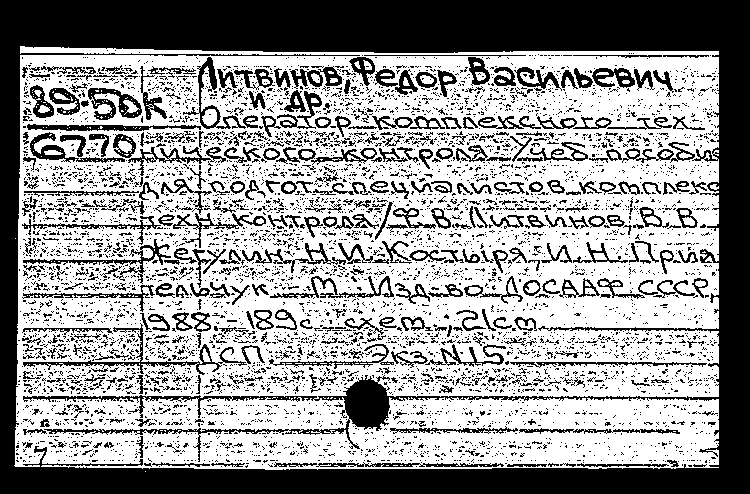 Литвинов, Федор Васильевич
и др.
89-50к
6770
Оператор комплексного тех-
нического контроля. Учеб. пособие
для подгот. специалистов комплекс
техн. контроля / Ф. В. Литвинов, В. В.
Жегулин, Н. И. Костыря, И. Н. Прия
тельчук. – М.: Изд-во ДОСААФ СССР,
1988. – 189с. схем.; 21см
ДСП. Экз. N15.
7